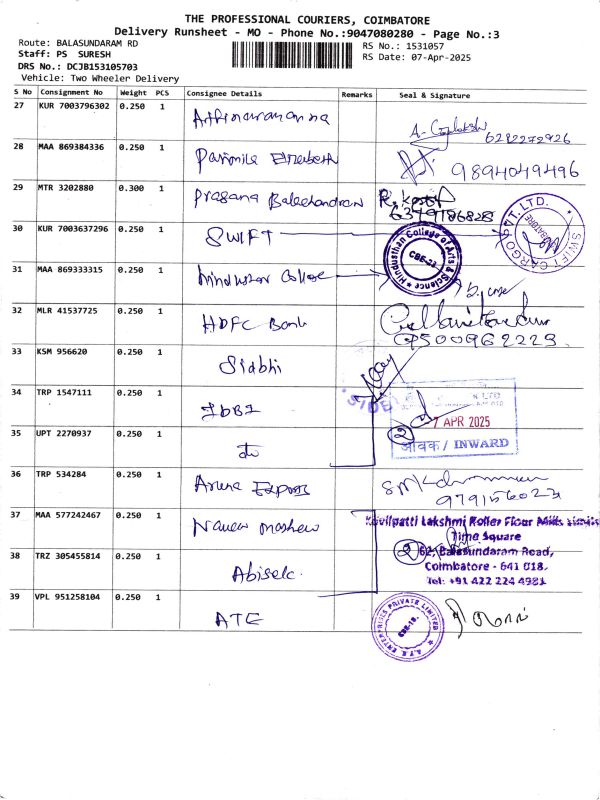 THE PROFESSIONAL COURIERS, COIMBATORE
Delivery Runsheet - MO - Phone No.:9047080280 - Page No.:3
Route: BALASUNDARAM RD
Staff: PS SURESH
DRS No.: DCJB153105703
Vehicle: Two Wheeler Delivery
RS No.: 1531057
RS Date: 07-Apr-2025
S No Consignment No Weight PCS Consignee Details Remarks Seal & Signature
27 KUR 7003796302 0.250 1
6282272926
28 MAA 869384336 0.250 1
9894049496
29 MTR 3202880 0.300 1 Prasana Balachandran
6379186828
30 KUR 7003637296 0.250 1 SWIFT
SWIFT CARGO PVT. LTD.
31 MAA 869333315 0.250 1 Hindustan College
Hindusthan College of Arts & Science
CBE-28
32 MLR 41537725 0.250 1 HDFC Bank
9500962229
33 KSM 956620 0.250 1 Siddhi
34 TRP 1547111 0.250 1 IDBI
7 APR 2025
35 UPT 2270937 0.250 1 do
आवक / INWARD
36 TRP 534284 0.250 1
979156023
37 MAA 577242467 0.250 1 Naveen
Kovilpatti Lakshmi Roller Flour Mills
Time Square
62, Balasundaram Road,
38 TRZ 305455814 0.250 1
Coimbatore - 641 018.
Tel: +91 422 224 4981
39 VPL 951258104 0.250 1 ATE
A.T.E. ENTERPRISES PRIVATE LIMITED
CBE-18.